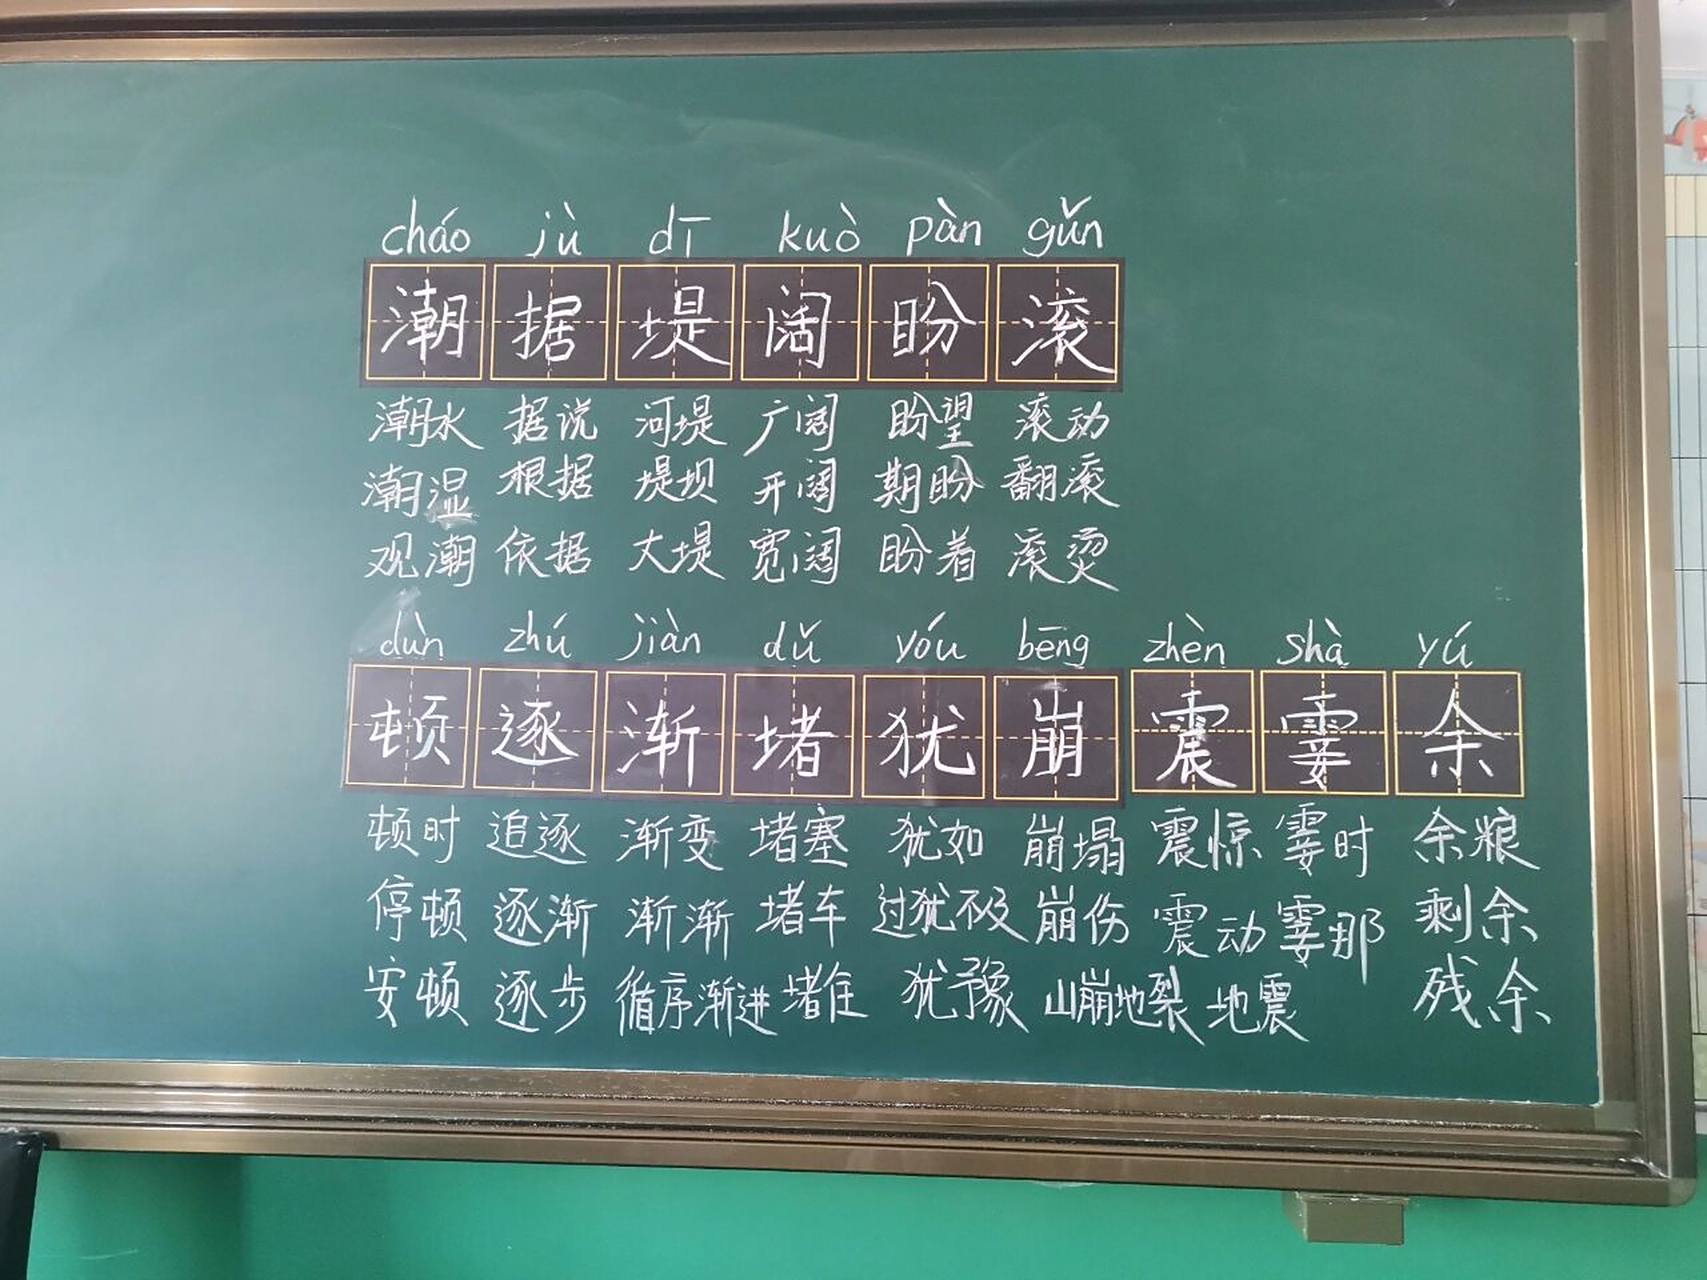 cháo jù dī kuò pàn gǔn
潮 据 堤 阔 盼 滚
潮水 据说 河堤 广阔 盼望 滚动
潮湿 根据 堤坝 开阔 期盼 翻滚
观潮 依据 大堤 宽阔 盼着 滚烫
dùn zhú jiàn dǔ yóu bēng zhèn shà yú
顿 逐 渐 堵 犹 崩 震 霎 余
顿时 追逐 渐变 堵塞 犹如 崩塌 震惊 霎时 余粮
停顿 逐渐 渐渐 堵车 过犹不及 崩伤 震动 霎那 剩余
安顿 逐步 循序渐进 堵住 犹豫 山崩地裂 地震 残余